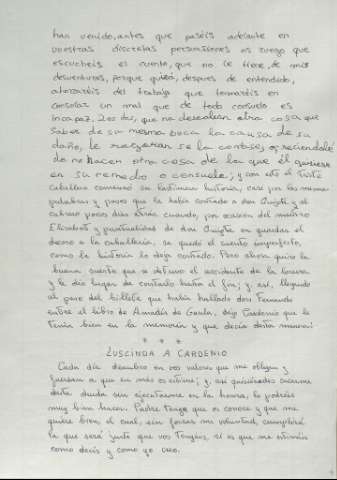 han venido, antes que paséis adelante en
vuestras discretas persuasiones os ruego que
escucheis el cuento, que no le tiene, de mis
desventuras, porque quizá, despues de entendido,
ahorraréis del trabajo que tomaréis en
consolar un mal que de todo consuelo es
incapaz. Los dos, que no deseaban otra cosa que
saber de su mesma boca la causa de su
daño, le rogaron se la contase, ofreciéndole
de no hacer otra cosa de la que él quisiese
en su remedio o consuelo; y con esto el triste
caballero comenzó su lastimera historia, casi por las mesmas
palabras y pasos que la había contado a don Quijote y al
cabrero pocos días atrás, cuando, por ocasión del maestro
Elisabat y puntualidad de don Quijote en guardar el
decoro a la caballería, se quedó el cuento imperfecto,
como la historia lo deja contado. Pero ahora quiso la
buena suerte que se detuvo el accidente de la locura
y le dio lugar de contarlo hasta el fin; y así, llegando
al paso del billete que había hallado don Fernando
entre el libro de Amadís de Gaula, dijo Cardenio que le
tenía bien en la memoria y que decía desta manera:
* * *
LUSCINDA A CARDENIO
Cada día descubro en vos valores que me obligan y
fuerzan a que en más os estime; y así quisiéredes sacarme
desta deuda sin ejecutarme en la honra, lo podréis
muy bien hacer. Padre tengo que os conoce y que me
quiere bien, el cual, sin forzar mi voluntad, cumplirá
la que será justo que vos tengáis, si es que me estimáis
como decís y como yo creo.